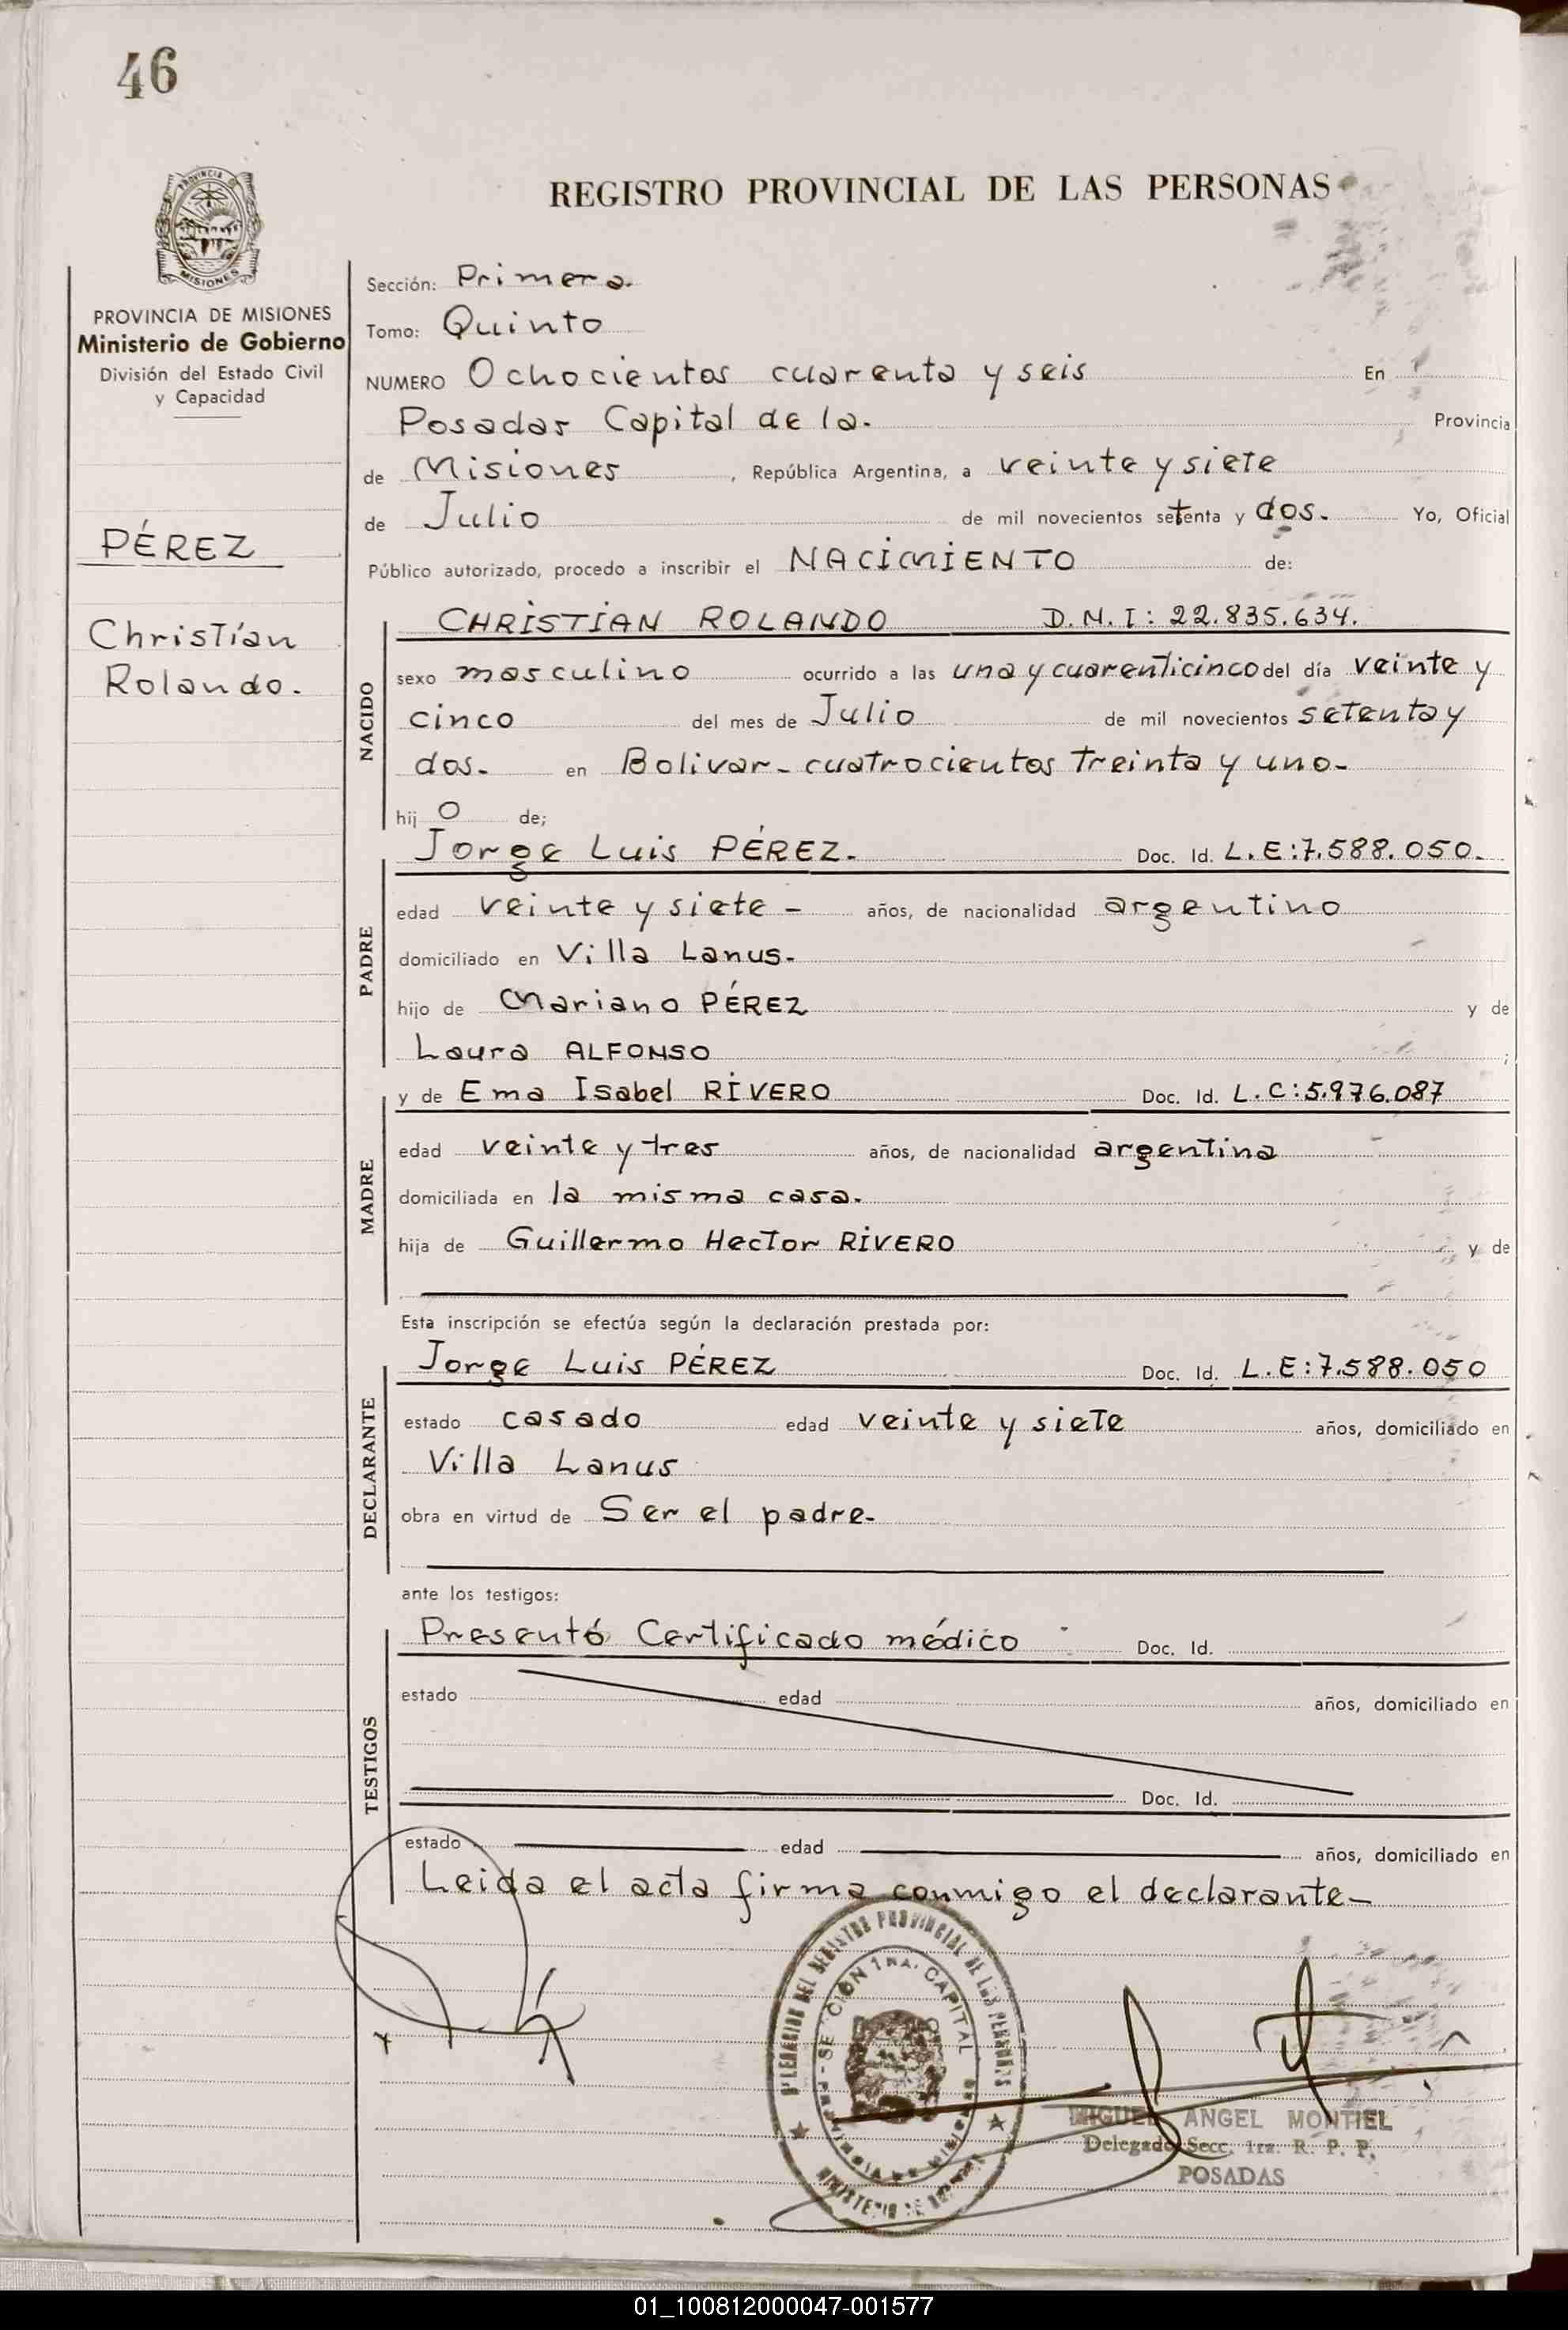 46
REGISTRO PROVINCIAL DE LAS PERSONAS
PROVINCIA
MISIONES
PROVINCIA DE MISIONES
Ministerio de Gobierno
División del Estado Civil
y Capacidad
PÉREZ
Christían
Rolando.
Sección: Primera.
Tomo: Quinto
NUMERO Ochocientos cuarenta y seis En
Posadas Capital de la. Provincia
de Misiones, República Argentina, a veinte y siete
de Julio de mil novecientos setenta y dos. Yo, Oficial
Público autorizado, procedo a inscribir el NACIMIENTO de:
NACIDO
CHRISTIAN ROLANDO D.N.I: 22.835.634.
sexo masculino ocurrido a las una y cuarenticinco del día veinte y
cinco del mes de Julio de mil novecientos setenta y
dos. en Bolivar - cuatrocientos treinta y uno-
hij o de;
PADRE
Jorge Luis PÉREZ. Doc. Id. L.E:7.588.050.
edad veinte y siete - años, de nacionalidad argentino
domiciliado en Villa Lanus.
hijo de Mariano PÉREZ y de
Laura ALFONSO ;
MADRE
y de Ema Isabel RIVERO Doc. Id. L.C:5.976.087
edad veinte y tres años, de nacionalidad argentina
domiciliada en la misma casa.
hija de Guillermo Hector RIVERO y de
Esta inscripción se efectúa según la declaración prestada por:
DECLARANTE
Jorge Luis PÉREZ Doc. Id. L.E:7.588.050
estado casado edad veinte y siete años, domiciliado en
Villa Lanus
obra en virtud de Ser el padre-
ante los testigos:
TESTIGOS
Presentó Certificado médico Doc. Id.
estado edad años, domiciliado en
Doc. Id.
estado edad años, domiciliado en
Leida el acta firma conmigo el declarante-
DEL REGISTRO PROVINCIAL DE LAS PERSONAS
SECCION 1RA. CAPITAL
MIGUEL ANGEL MONTIEL
Delegado Secc. 1ra. R. P. P.
POSADAS
01_100812000047-001577